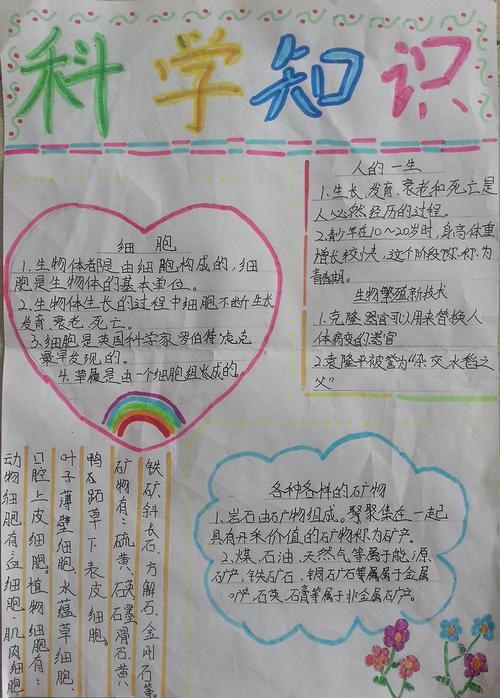 科学知识
人的一生
1.生长、发育、衰老和死亡是
人必然经历的过程。
2.青少年在10~20岁时,身高体重
增长较快,这个阶段称为
青春期。
生物繁殖新技术
1.克隆器官可以用来替换人
体病变的器官
2.袁隆平被誉为“杂交水稻之
父”
细胞
1.生物体都是由细胞构成的,细
胞是生物体的基本单位。
2.生物体生长的过程中细胞不断生长
发育、衰老、死亡。
3.细胞是英国科学家罗伯特·虎克
最早发现的。
4.草履是由一个细胞组长成的。
铁矿、斜长石、方解石、金刚石等。
矿物有:硫黄、石英、石墨、滑石、黄
鸭跖草下表皮细胞。
叶子薄壁细胞、水蕴草细胞、
口腔上皮细胞。植物细胞有:
动物细胞有:血细胞、肌肉细胞
各种各样的矿物
1.岩石由矿物组成。聚聚集在一起
具有开采价值的矿物称为矿产。
2.煤、石油、天然气等属于能源
矿产,铁矿石、铜矿石等属属于金属
矿产、石英、石膏等属于非金属矿产。